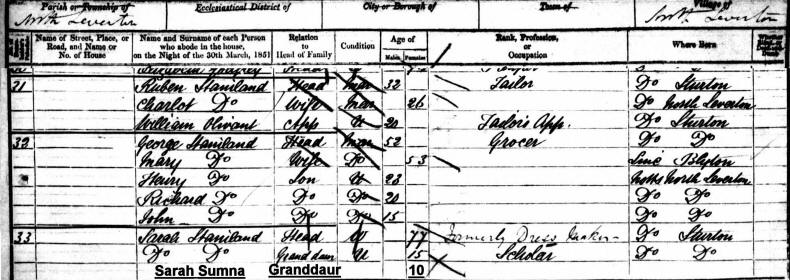 Parish or Township of Ecclesiastical District of City or Borough of Town of Village of
North Leverton North Leverton
Name of Street, Place, or Road, and Name or No. of House Name and Surname of each Person who abode in the house, on the Night of the 30th March, 1851 Relation to Head of Family Condition Age of Males Females Rank, Profession, or Occupation Where Born
21 Ruben Staniland Head Mar 32 Tailor Do Sturton
Charlot Do Wife Mar 26 Do North Leverton
William Olivant App U 20 Tailor's App. Do Sturton
32 George Staniland Head Mar 52 Grocer Do Do
Mary Do Wife Do 53 Linc Blyton
Henry Do Son U 23 Notts North Leverton
Richard Do Do Do 20 Do Do
John Do Do Do 15 Do Do
33 Sarah Staniland Head W 77 Formerly Dress Maker Do Sturton
Do Do Grand daur U 15 Scholar Do Do
Sarah Sumna Granddaur 10